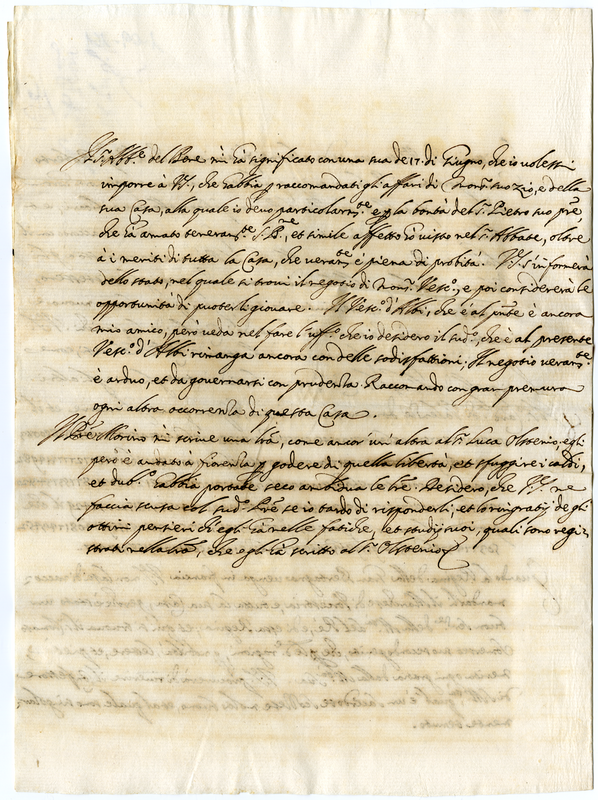 Il S.r Abb.e del Bene mi hà significato con una sua de 17. di Giugno, che io volessi
imporre à V.S., che habbia p raccomandati gli affari di Mons.r suo zio, e della
sua Casa, alla quale io devo particolarm.te e p la bontà del S.r Pietro suo p̃re,
che hà amato teneram.te S. B.ne, et simile affetto hò visto nel S.r Abbate, oltre
à i meriti di tutta la Casa, che veram.te è piena di probità. V.S. s'informerà
dello stato, nel quale si trovi il negotio di Mons.r Vesc.o, e poi considererà le
opportunità di poterli giovare. Il Vesc.o d'Albi, che è al p̃nte è ancora
mio amico, però veda nel fare l'uff.o che io desidero il sud.o, che è al presente
Vesc.o d'Albi rimanga ancora con delle sodisfattioni. Il negotio veram.te
è arduo, et da governarsi con prudenza. Raccomando con gran premura
ogni altra occorrenza di questa Casa.
Il P̃re Morino mi scrive una l̃ra, come ancor' un' altra al S.r Luca Olstenio, egli
però è andato à fiorenza p godere di quella libertà, et sfuggire i caldi,
et dub.o habbia portate seco le l̃re. Desidero, che V.S. ne
faccia scusa col sud.o P̃re se io tardo di risponderli, et lo ringratij de gli
ottimi pensieri ch'egli hà nelle fatiche, et studij suoi, quali sono regi-
strati nella l̃ra, che egli hà scritto al S.r Olstenio